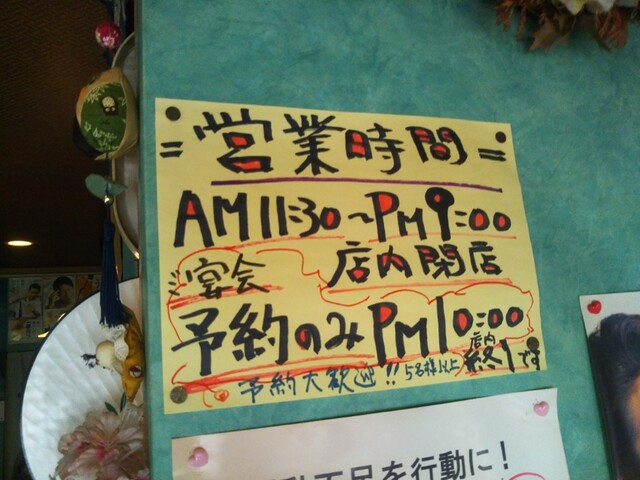 =営業時間=
AM11:30~PM9:00
店内閉店
※宴会
予約のみPM10:00
店内
終了です
予約大歓迎!!5名様以上
足を行動に!